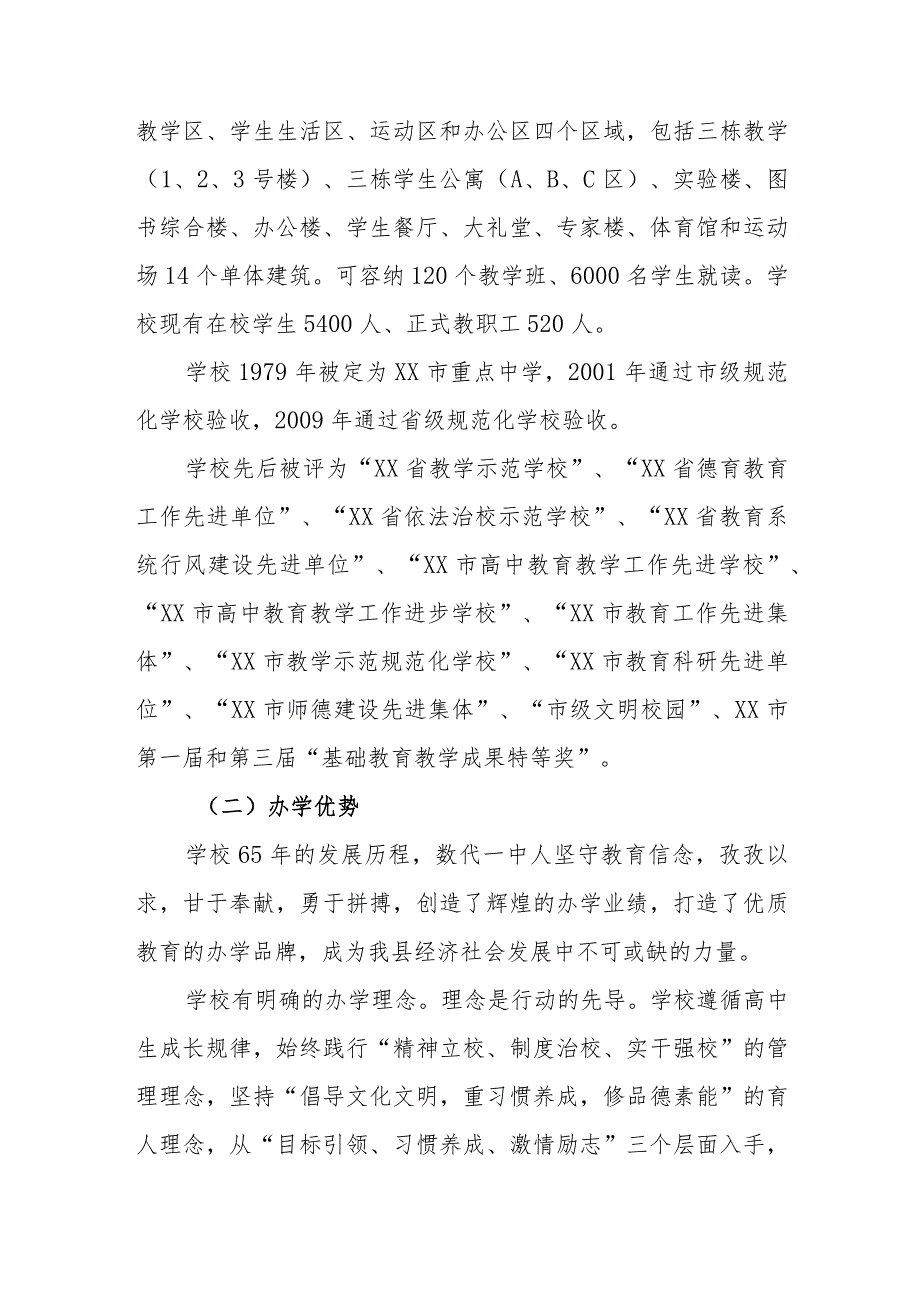 教学区、学生生活区、运动区和办公区四个区域，包括三栋教学
（1、2、3 号楼）、三栋学生公寓（A、B、C 区）、实验楼、图
书综合楼、办公楼、学生餐厅、大礼堂、专家楼、体育馆和运动
场 14 个单体建筑。可容纳 120 个教学班、6000 名学生就读。学
校现有在校学生 5400 人、正式教职工 520 人。
学校 1979 年被定为 XX 市重点中学，2001 年通过市级规范
化学校验收，2009 年通过省级规范化学校验收。
学校先后被评为“XX 省教学示范学校”、“XX 省德育教育
工作先进单位”、“XX 省依法治校示范学校”、“XX 省教育系
统行风建设先进单位”、“XX 市高中教育教学工作先进学校”、
“XX 市高中教育教学工作进步学校”、“XX 市教育工作先进集
体”、“XX 市教学示范规范化学校”、“XX 市教育科研先进单
位”、“XX 市师德建设先进集体”、“市级文明校园”、XX 市
第一届和第三届“基础教育教学成果特等奖”。
（二）办学优势
学校 65 年的发展历程，数代一中人坚守教育信念，孜孜以
求，甘于奉献，勇于拼搏，创造了辉煌的办学业绩，打造了优质
教育的办学品牌，成为我县经济社会发展中不可或缺的力量。
学校有明确的办学理念。理念是行动的先导。学校遵循高中
生成长规律，始终践行“精神立校、制度治校、实干强校”的管
理理念，坚持“倡导文化文明，重习惯养成，修品德素能”的育
人理念，从“目标引领、习惯养成、激情励志”三个层面入手，